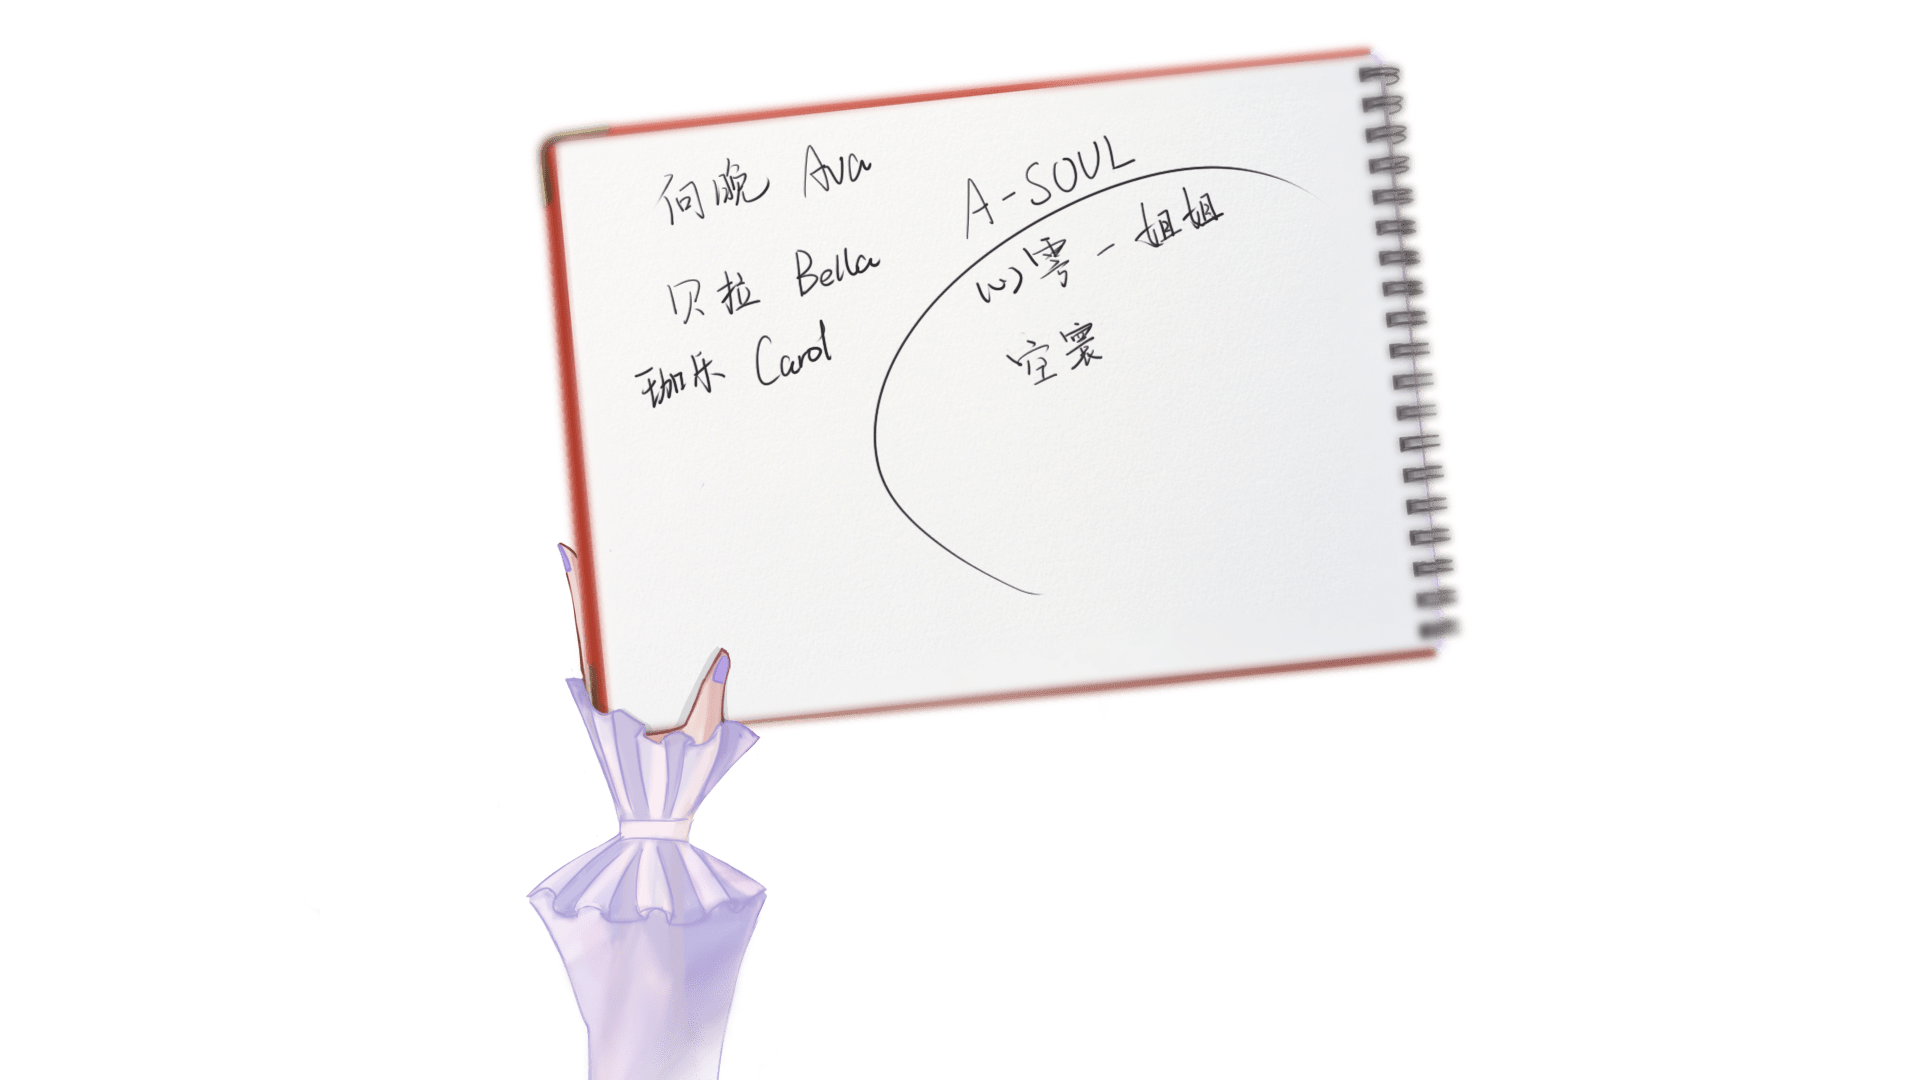 向晚 Ava
贝拉 Bella
珈乐 Carol
A-SOUL
雩 - 姐姐
空寰